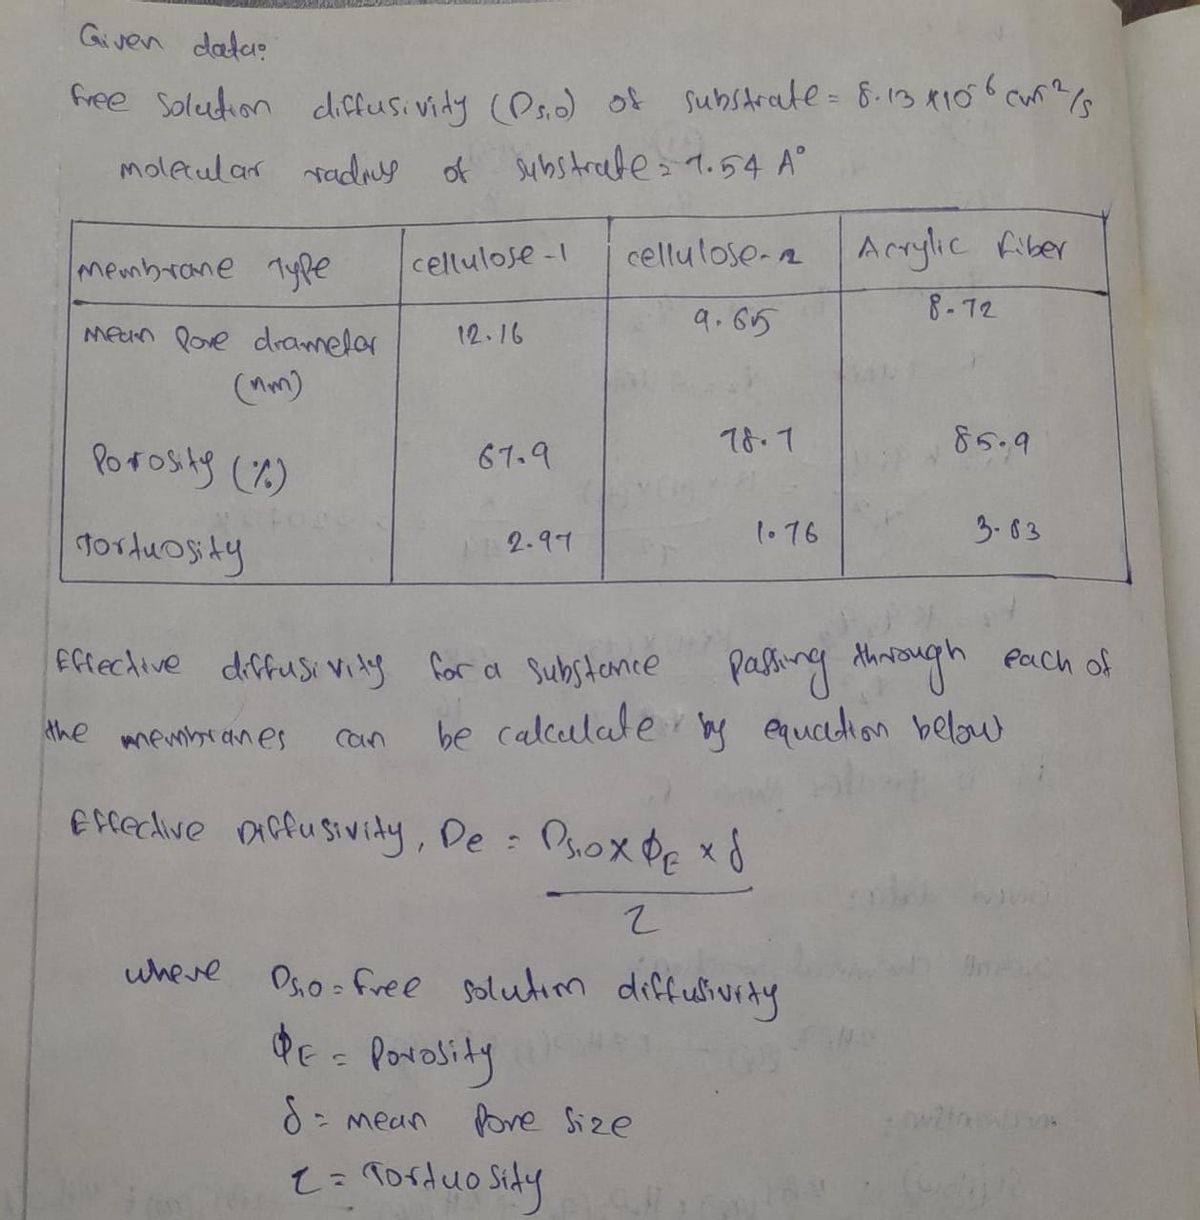 Given data:
free solution diffusivity (Ds,o) of substrate = 8.13 x10⁻⁶ cm²/s
molecular radius of substrate = 7.54 A°
Membrane Type cellulose-1 cellulose-2 Acrylic fiber
Mean Pore diameter (nm) 12.16 9.65 8.72
Porosity (%) 67.9 78.7 85.9
Tortuosity 2.97 1.76 3.83
Effective diffusivity for a substance passing through each of
the membranes can be calculate by equation below
Effective Diffusivity, De = Ds,o x ϕE x δ
τ
where Ds,o = free solution diffusivity
ϕE = Porosity
δ = mean Pore size
τ = Tortuosity